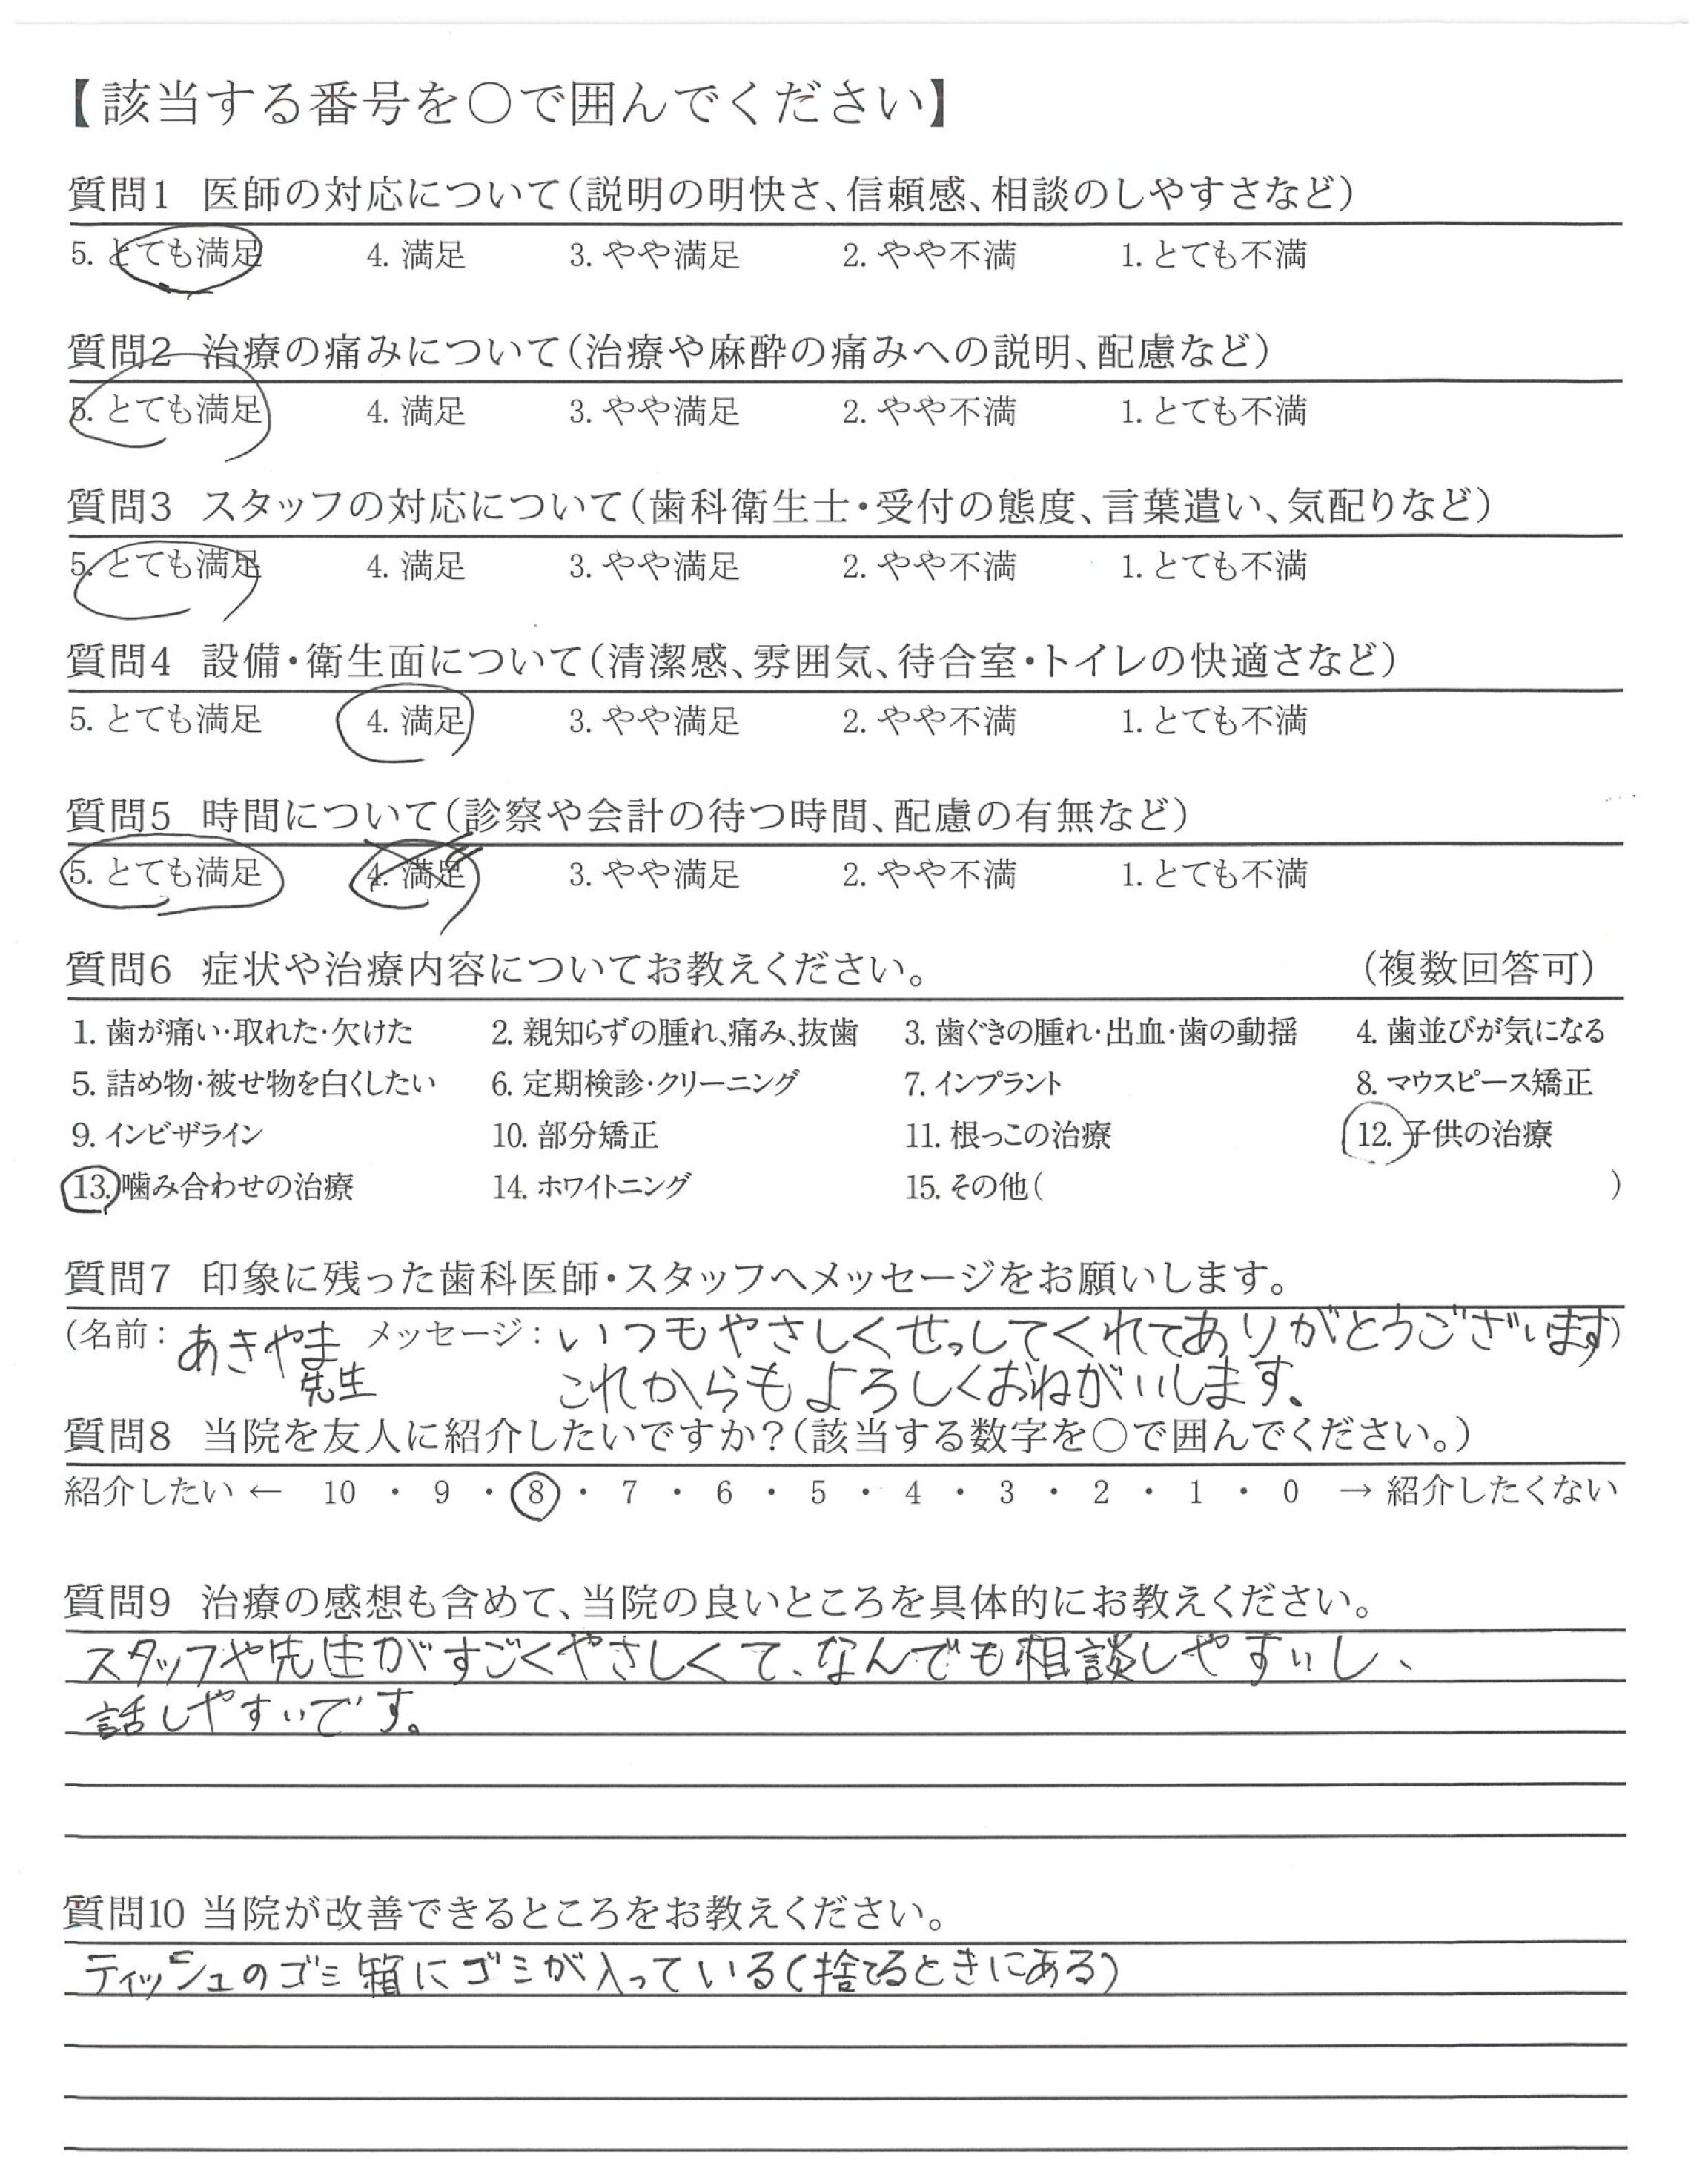 【該当する番号を〇で囲んでください】
質問1 医師の対応について(説明の明快さ、信頼感、相談のしやすさなど)
5. とても満足 4. 満足 3. やや満足 2. やや不満 1. とても不満
質問2 治療の痛みについて(治療や麻酔の痛みへの説明、配慮など)
5. とても満足 4. 満足 3. やや満足 2. やや不満 1. とても不満
質問3 スタッフの対応について(歯科衛生士・受付の態度、言葉遣い、気配りなど)
5. とても満足 4. 満足 3. やや満足 2. やや不満 1. とても不満
質問4 設備・衛生面について(清潔感、雰囲気、待合室・トイレの快適さなど)
5. とても満足 4. 満足 3. やや満足 2. やや不満 1. とても不満
質問5 時間について(診察や会計の待つ時間、配慮の有無など)
5. とても満足 4. 満足 3. やや満足 2. やや不満 1. とても不満
質問6 症状や治療内容についてお教えください。 (複数回答可)
1. 歯が痛い・取れた・欠けた 2. 親知らずの腫れ、痛み、抜歯 3. 歯ぐきの腫れ・出血・歯の動揺 4. 歯並びが気になる
5. 詰め物・被せ物を白くしたい 6. 定期検診・クリーニング 7. インプラント 8. マウスピース矯正
9. インビザライン 10. 部分矯正 11. 根っこの治療 12. 子供の治療
13. 噛み合わせの治療 14. ホワイトニング 15. その他( )
質問7 印象に残った歯科医師・スタッフへメッセージをお願いします。
(名前: あきやま メッセージ: いつもやさしくせっしてくれてありがとうございます)
先生 これからもよろしくおねがいします。
質問8 当院を友人に紹介したいですか?(該当する数字を〇で囲んでください。)
紹介したい ← 10 ・ 9 ・ 8 ・ 7 ・ 6 ・ 5 ・ 4 ・ 3 ・ 2 ・ 1 ・ 0 → 紹介したくない
質問9 治療の感想も含めて、当院の良いところを具体的にお教えください。
スタッフや先生がすごくやさしくて、なんでも相談しやすいし、
話しやすいです。
質問10 当院が改善できるところをお教えください。
ティッシュのゴミ箱にゴミが入っている(捨てるときにある)